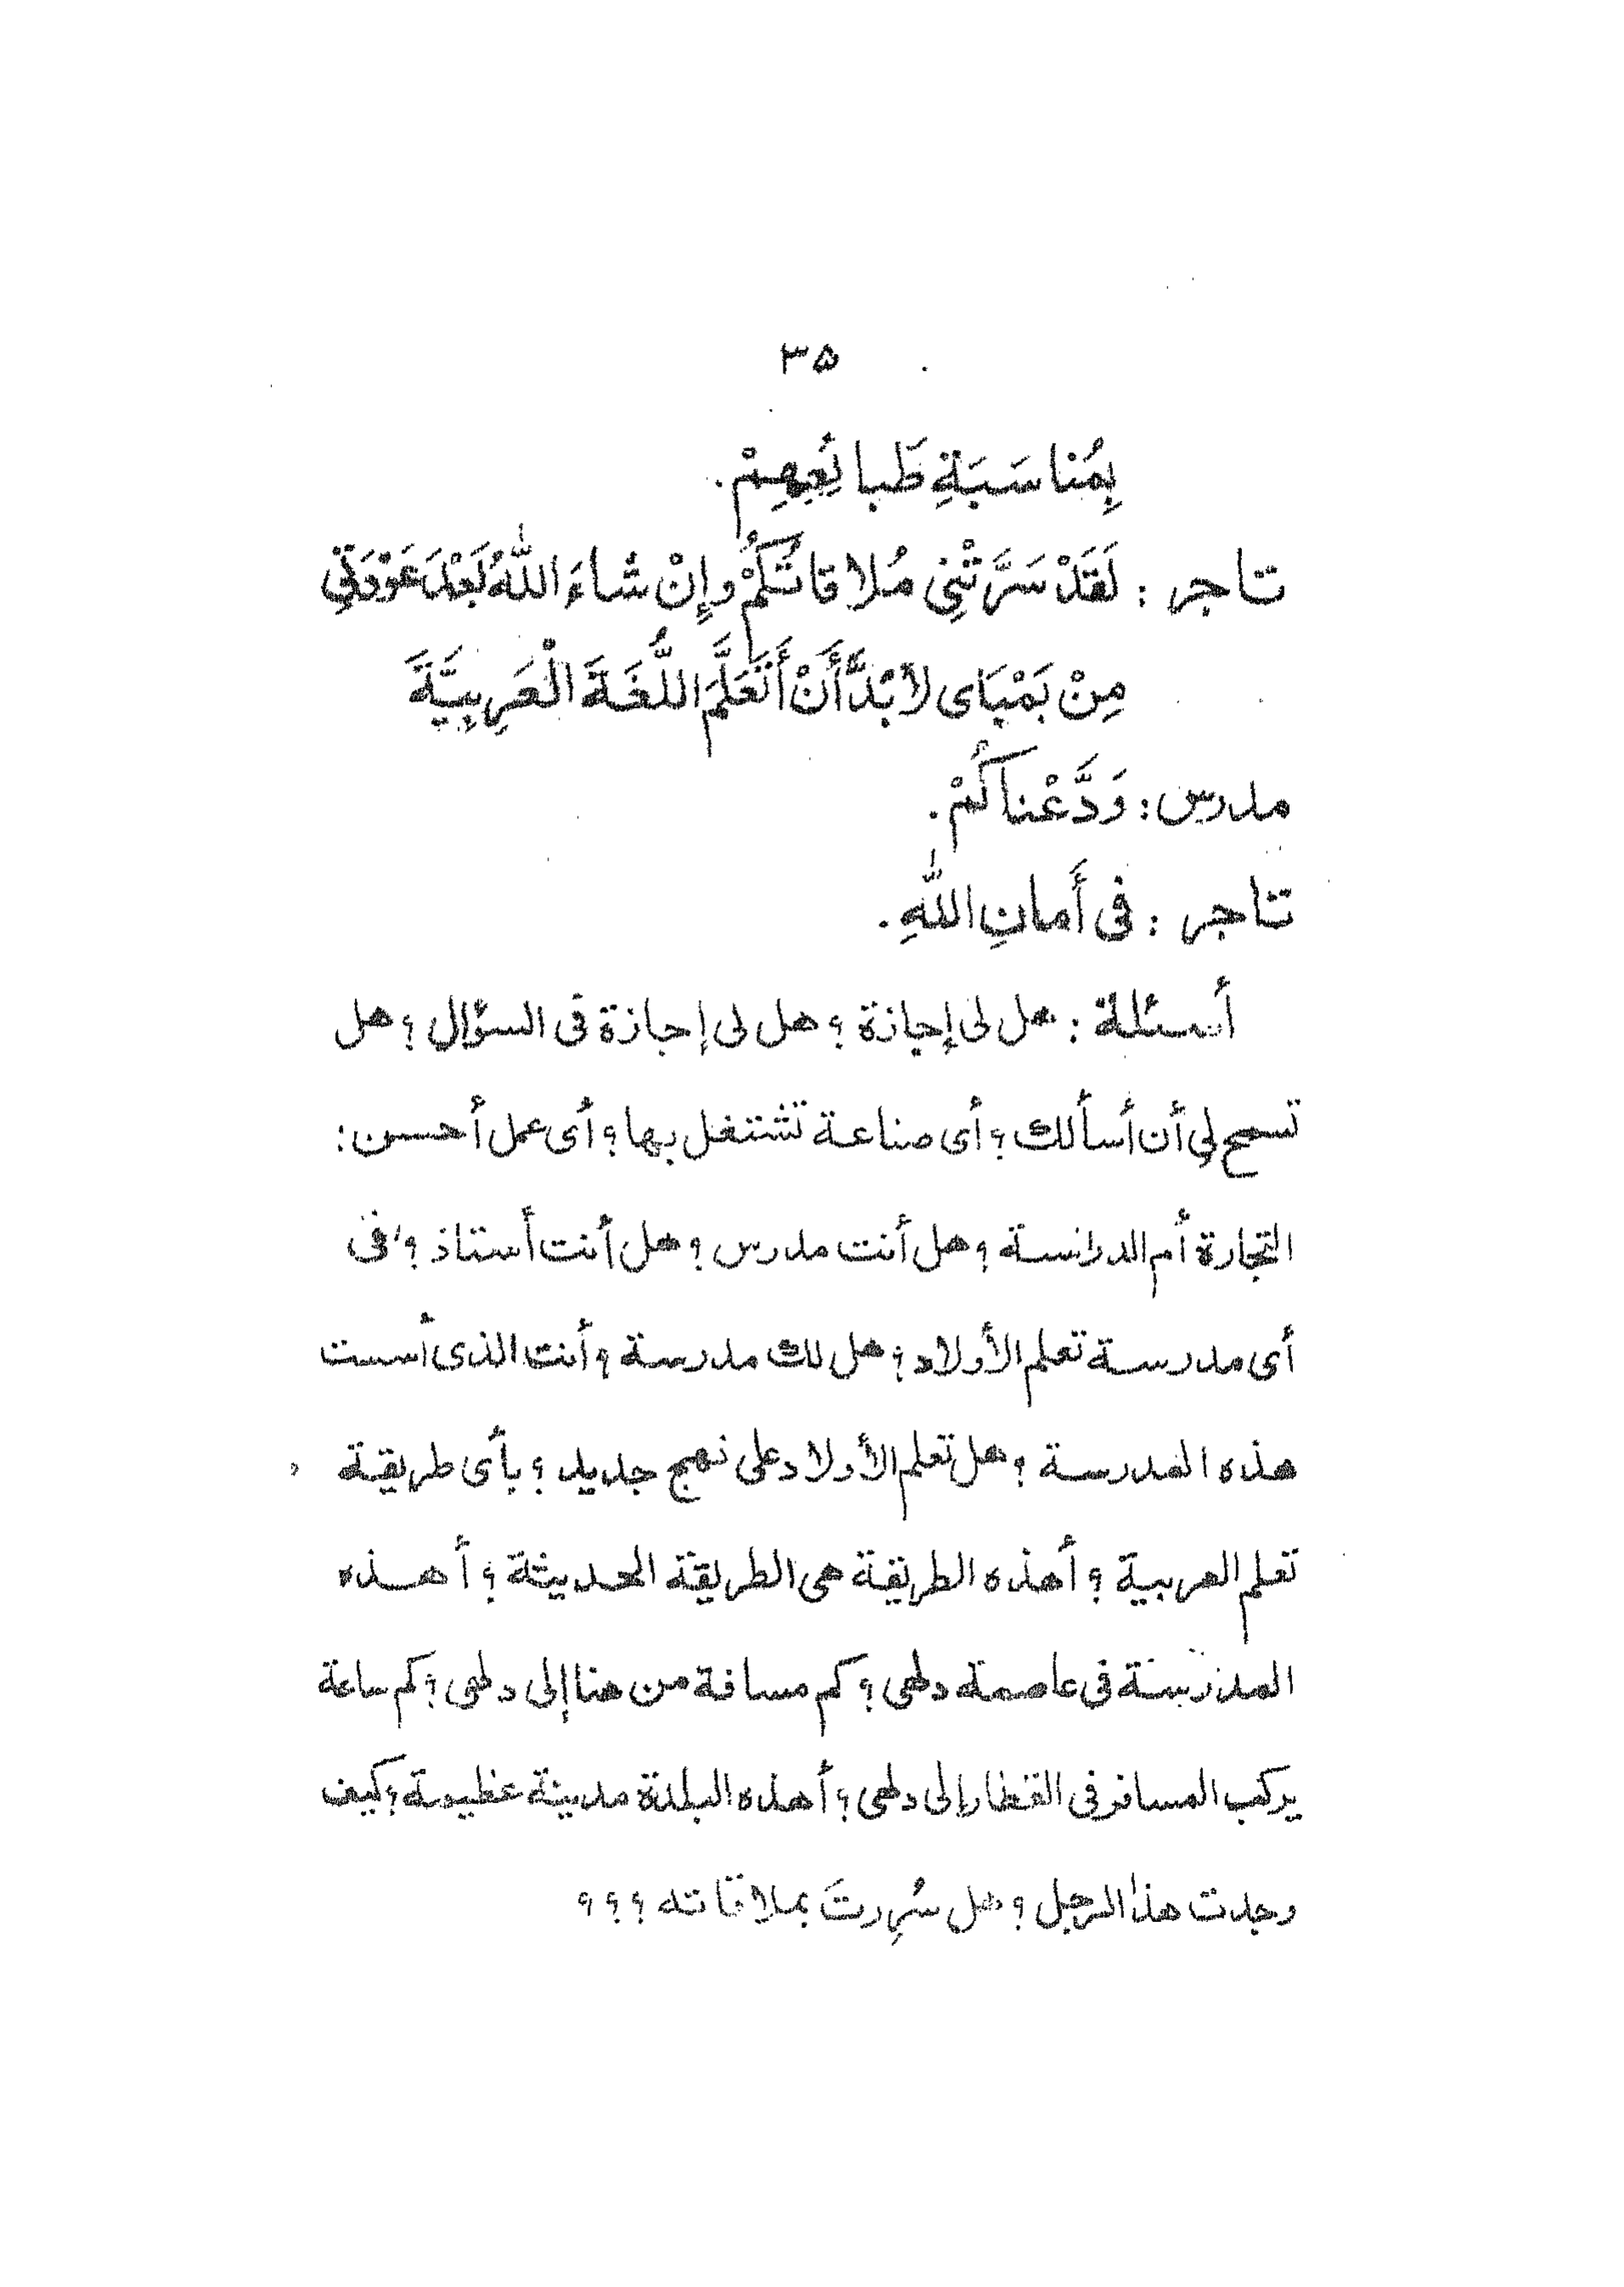 ۳۵
بِمُناسَبَةِ طَبائِعِهِمْ.
تاجر : لَقَدْ سَرَّتْنِی مُلاقاتُكُمْ وإِنْ شاءَ اللّٰهُ بَعْدَ عَوْدَتِي
مِنْ بَمْبَای لاَبُدَّ أَنْ أَتَعَلَّمَ اللُّغَةَ الْعَرِبِيَّةَ
مدرس : وَدَّعْناكُمْ.
تاجر : فی أَمانِ اللّٰهِ.
أسئلة : هل لی إجازة ؟ هل لی إجازة فی السؤال ؟ هل
تسمح لي أن أسألك ؟ أی صناعة تشتغل بها ؟ أی عمل أحسن :
التجارة أم الدراسة ؟ هل أنت مدرس ؟ هل أنت أستاذ ؟ فی
أی مدرسة تعلم الأولاد ؟ هل لك مدرسة ؟ أنت الذی أسست
هذه المدرسة ؟ هل تعلم الأولاد علی نهج جديد ؟ بأی طريقة
تعلم العربية ؟ أهذه الطريقة هی الطريقة الحديثة ؟ أهذه
المدرسة فی عاصمة دلهی ؟ كم مسافة من هنا إلی دلهی ؟ كم ساعة
يركب المسافر فی القطار إلی دلهی ؟ أهذه البلدة مدينة عظيمة ؟ كيف
وجدت هذا الرجل ؟ هل سُرِرتَ بملاقاته ؟ ؟ ؟